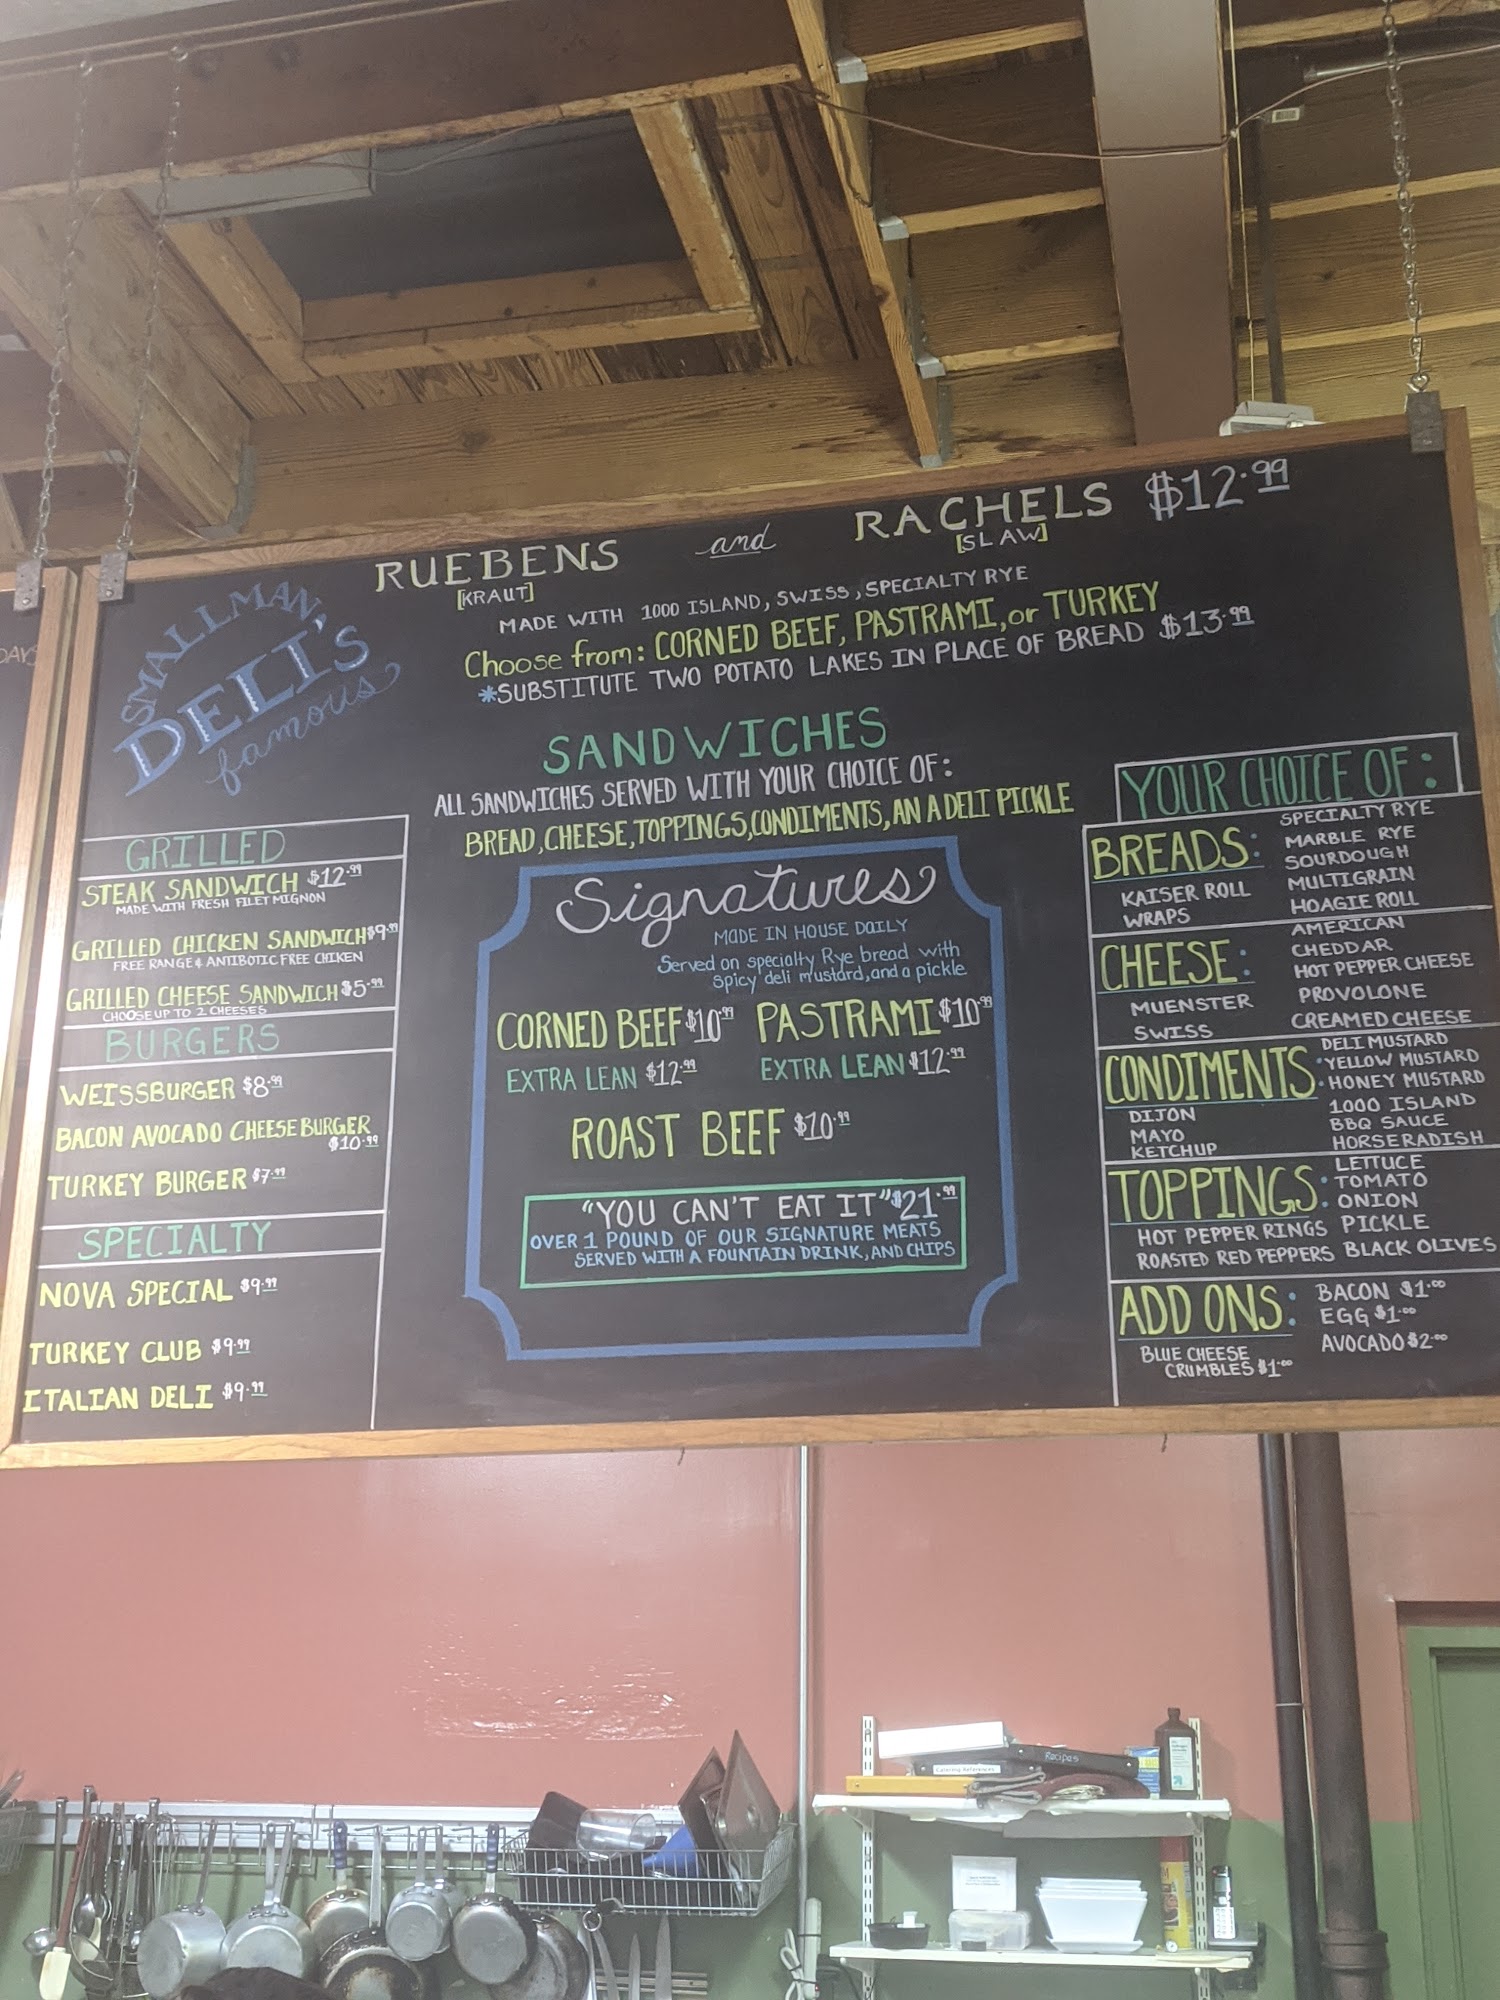 DAYS
SMALLMAN
DELI'S
famous
RUEBENS and RACHELS $12.99
[KRAUT] [SLAW]
MADE WITH 1000 ISLAND, SWISS, SPECIALTY RYE
Choose from: CORNED BEEF, PASTRAMI, or TURKEY
*SUBSTITUTE TWO POTATO LAKES IN PLACE OF BREAD $13.99
SANDWICHES
ALL SANDWICHES SERVED WITH YOUR CHOICE OF:
BREAD, CHEESE, TOPPINGS, CONDIMENTS, AN A DELI PICKLE
GRILLED
STEAK SANDWICH $12.99
MADE WITH FRESH FILET MIGNON
GRILLED CHICKEN SANDWICH $9.99
FREE RANGE & ANTIBOTIC FREE CHIKEN
GRILLED CHEESE SANDWICH $5.99
CHOOSE UP TO 2 CHEESES
BURGERS
WEISSBURGER $8.99
BACON AVOCADO CHEESEBURGER
$10.99
TURKEY BURGER $7.99
SPECIALTY
NOVA SPECIAL $9.99
TURKEY CLUB $9.99
ITALIAN DELI $9.99
Signatures
MADE IN HOUSE DAILY
Served on specialty Rye bread with
spicy deli mustard, and a pickle
CORNED BEEF $10.99 PASTRAMI $10.99
EXTRA LEAN $12.99 EXTRA LEAN $12.99
ROAST BEEF $10.99
"YOU CAN'T EAT IT" $21.99
OVER 1 POUND OF OUR SIGNATURE MEATS
SERVED WITH A FOUNTAIN DRINK, AND CHIPS
YOUR CHOICE OF:
BREADS: SPECIALTY RYE
MARBLE RYE
SOURDOUGH
KAISER ROLL MULTIGRAIN
WRAPS HOAGIE ROLL
CHEESE: AMERICAN
CHEDDAR
HOT PEPPER CHEESE
MUENSTER PROVOLONE
SWISS CREAMED CHEESE
CONDIMENTS: DELI MUSTARD
YELLOW MUSTARD
HONEY MUSTARD
DIJON 1000 ISLAND
MAYO BBQ SAUCE
KETCHUP HORSERADISH
TOPPINGS: LETTUCE
TOMATO
ONION
HOT PEPPER RINGS PICKLE
ROASTED RED PEPPERS BLACK OLIVES
ADD ONS: BACON $1.00
EGG $1.00
BLUE CHEESE AVOCADO $2.00
CRUMBLES $1.00
Recipes
Catering References